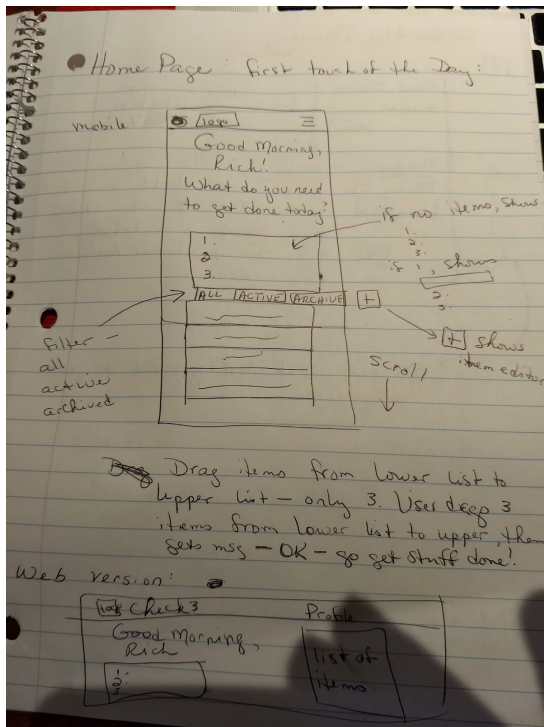 Home Page: first touch of the Day:
mobile:
logo
Good Morning,
Rich!
What do you need
to get done today?
1.
2.
3.
if no items, shows
1.
2.
3.
if 1, shows
2.
3.
ALL ACTIVE ARCHIVE +
+ shows
item editor
filter -
all
active
archived
scroll
Drag items from lower list to
upper list - only 3. User drags 3
items from lower list to upper, then
gets msg - OK - go get stuff done!
Web version:
logo Check3 Profile
Good Morning,
Rich
1.
2.
3
list of
items